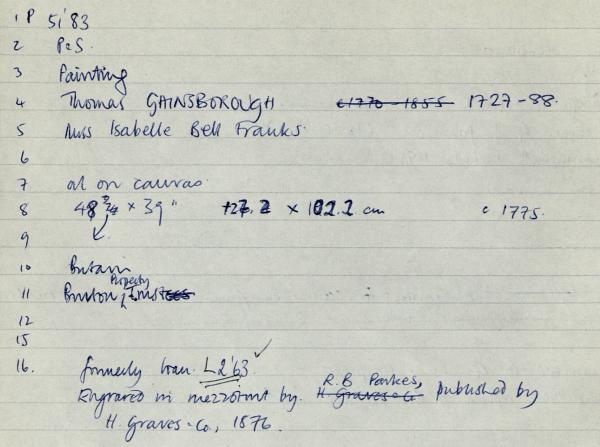 1 P 5i'83
2 P&S.
3 Painting
4 Thomas GAINSBOROUGH c1770-1855 1727-88.
5 Miss Isabelle Bell Franks.
6
7 oil on canvas.
8 48 3/4 × 39" 127.2 × 102.2 cm c 1775.
9
10 Britain
11 Burton Property Trustees
12
15
16. formerly loan L2'63 ✓
Engraved in mezzotint by H. Graves & Co R.B Parkes, published by
H. Graves & Co, 1876.